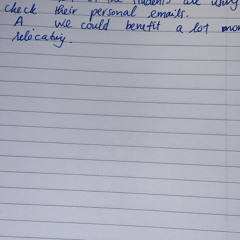 of the students are using
check their personal emails.
A we could benefit a lot more
relocating.